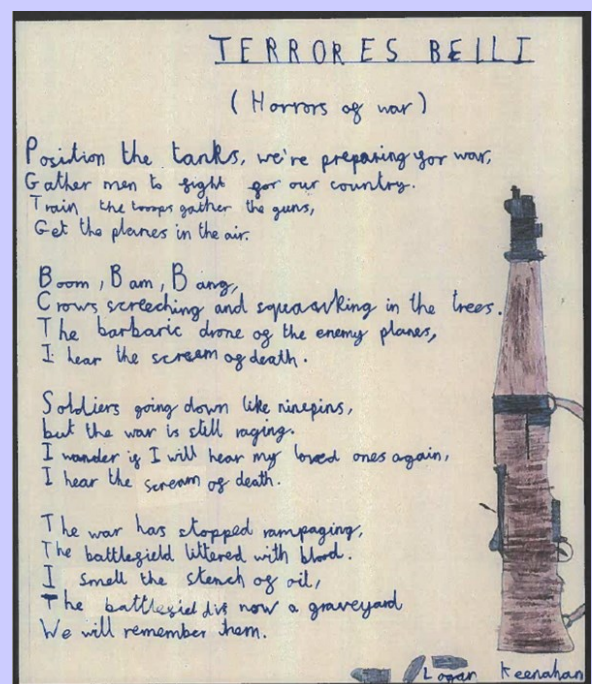 TERRORES BELLI
(Horrors of war)
Position the tanks, we're preparing for war,
Gather men to fight for our country.
Train the troops gather the guns,
Get the planes in the air.
Boom, Bam, Bang,
Crows screeching and squawking in the trees.
The barbaric drone of the enemy planes,
I hear the scream of death.
Soldiers going down like ninepins,
but the war is still raging.
I wander if I will hear my loved ones again,
I hear the scream of death.
The war has stopped rampaging,
The battlefield littered with blood.
I smell the stench of oil,
The battlefield is now a graveyard
We will remember them.
Logan Keenahan